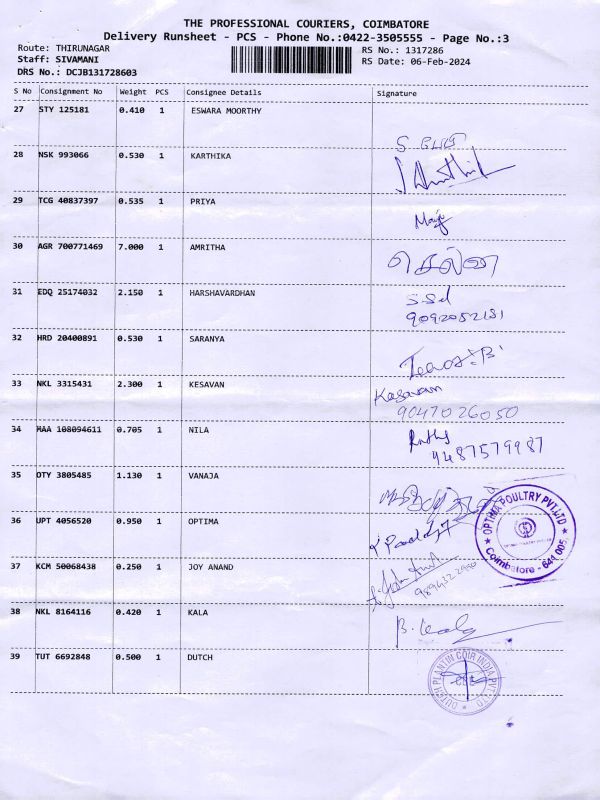 THE PROFESSIONAL COURIERS, COIMBATORE
Delivery Runsheet - PCS - Phone No.:0422-3505555 - Page No.:3
Route: THIRUNAGAR
RS No.: 1317286
Staff: SIVAMANI
RS Date: 06-Feb-2024
DRS No.: DCJB131728603
S No Consignment No Weight PCS Consignee Details Signature
27 STY 125181 0.410 1 ESWARA MOORTHY
28 NSK 993066 0.530 1 KARTHIKA
29 TCG 40837397 0.535 1 PRIYA
30 AGR 700771469 7.000 1 AMRITHA
செல்வி
31 EDQ 25174032 2.150 1 HARSHAVARDHAN
9092052151
32 HRD 20400891 0.530 1 SARANYA
33 NKL 3315431 2.300 1 KESAVAN
Kesavan
9047026050
34 MAA 108094611 0.705 1 NILA
9487579987
35 OTY 3805485 1.130 1 VANAJA
36 UPT 4056520 0.950 1 OPTIMA
OPTIMA POULTRY PVT.LTD
Coimbatore - 641 005.
37 KCM 50068438 0.250 1 JOY ANAND
38 NKL 8164116 0.420 1 KALA
39 TUT 6692848 0.500 1 DUTCH
DUTCH PLANTIN COIR INDIA PVT LTD
CBE